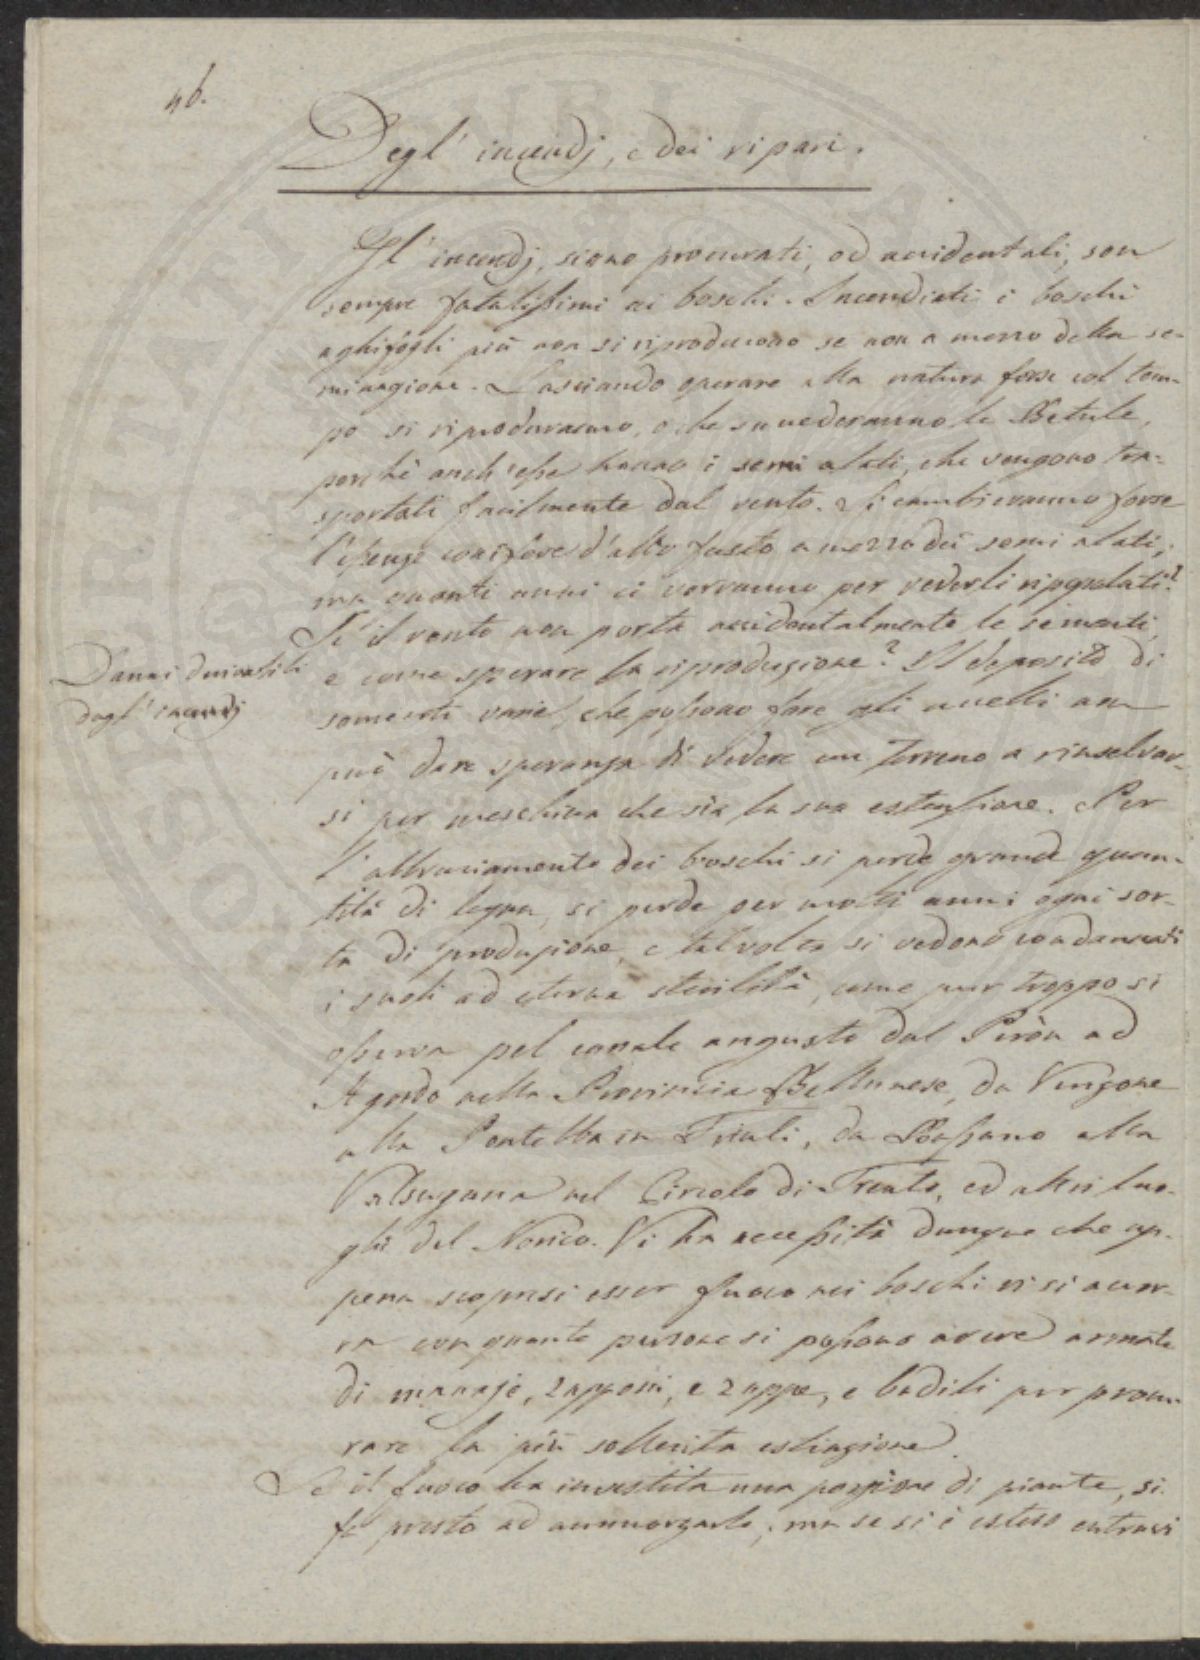 46.
Degl' incendj, e dei ripari.
Gl' incendj, sieno procurati, od accidentali, son
sempre fatalissimi ai boschi. Incendiati i boschi
aghifogli più non si riproducono se non a mezzo della se-
minagione. Lasciando operare alla natura forse col tem-
po si riprodurranno, o che succederanno le Betule,
perchè anch' esse hanno i semi alati, che vengono tra-
sportati facilmente dal vento. Si cambieranno forse
l'essenze conifere d'alto fusto a mezzo dei semi alati;
ma quanti anni ci vorranno per vederli ripopolati?
Se il vento non porta accidentalmente le sementi,
e come sperare la riproduzione? Il deposito di
Danni derivabili
dagl' incendj
sementi varie, che possono fare gli uccelli non
può dare speranza di vedere un terreno a rinselvar-
si per meschina che sia la sua estensione. Per
l' abbruciamento dei boschi si perde grande quan-
tità di legna, si perde per molti anni ogni sor-
ta di produzione, e talvolta si vedono condannati
i suoli ad eterna sterilità, come pur troppo si
osserva pel canale angusto dal Peròn ad
Agordo nella Provincia Bellunese, da Venzone
alla Pontebba in Friuli, da Bassano alla
Valsugana nel Circolo di Trento, ed altri luo-
ghi del Norico. Vi ha necessità dunque che ap-
pena scopresi esser fuoco nei boschi vi si accor-
ra con quante persone si possono avere armate
di manaje, zapponi, e zappe, e badili per procu-
rare la più sollecita estinzione.
Se il fuoco ha investita una porzione di piante, si
fa presto ad ammorzarlo; ma se si è esteso entrovi